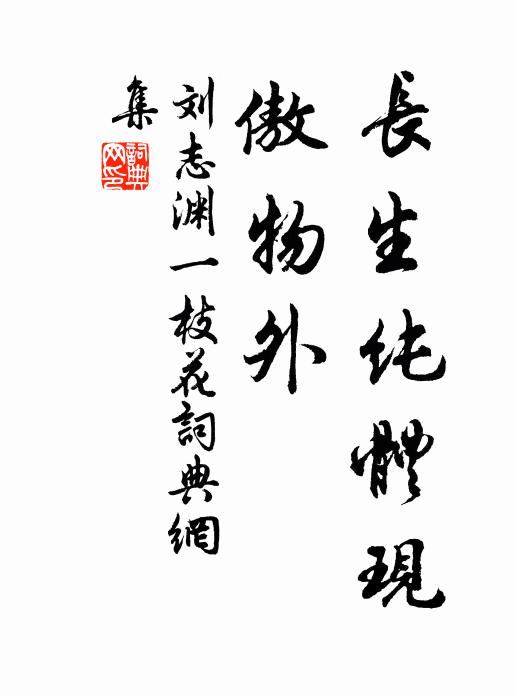 長生纯體現
傲物外
刘志渊一枝花詞典網
集
詞典
网印